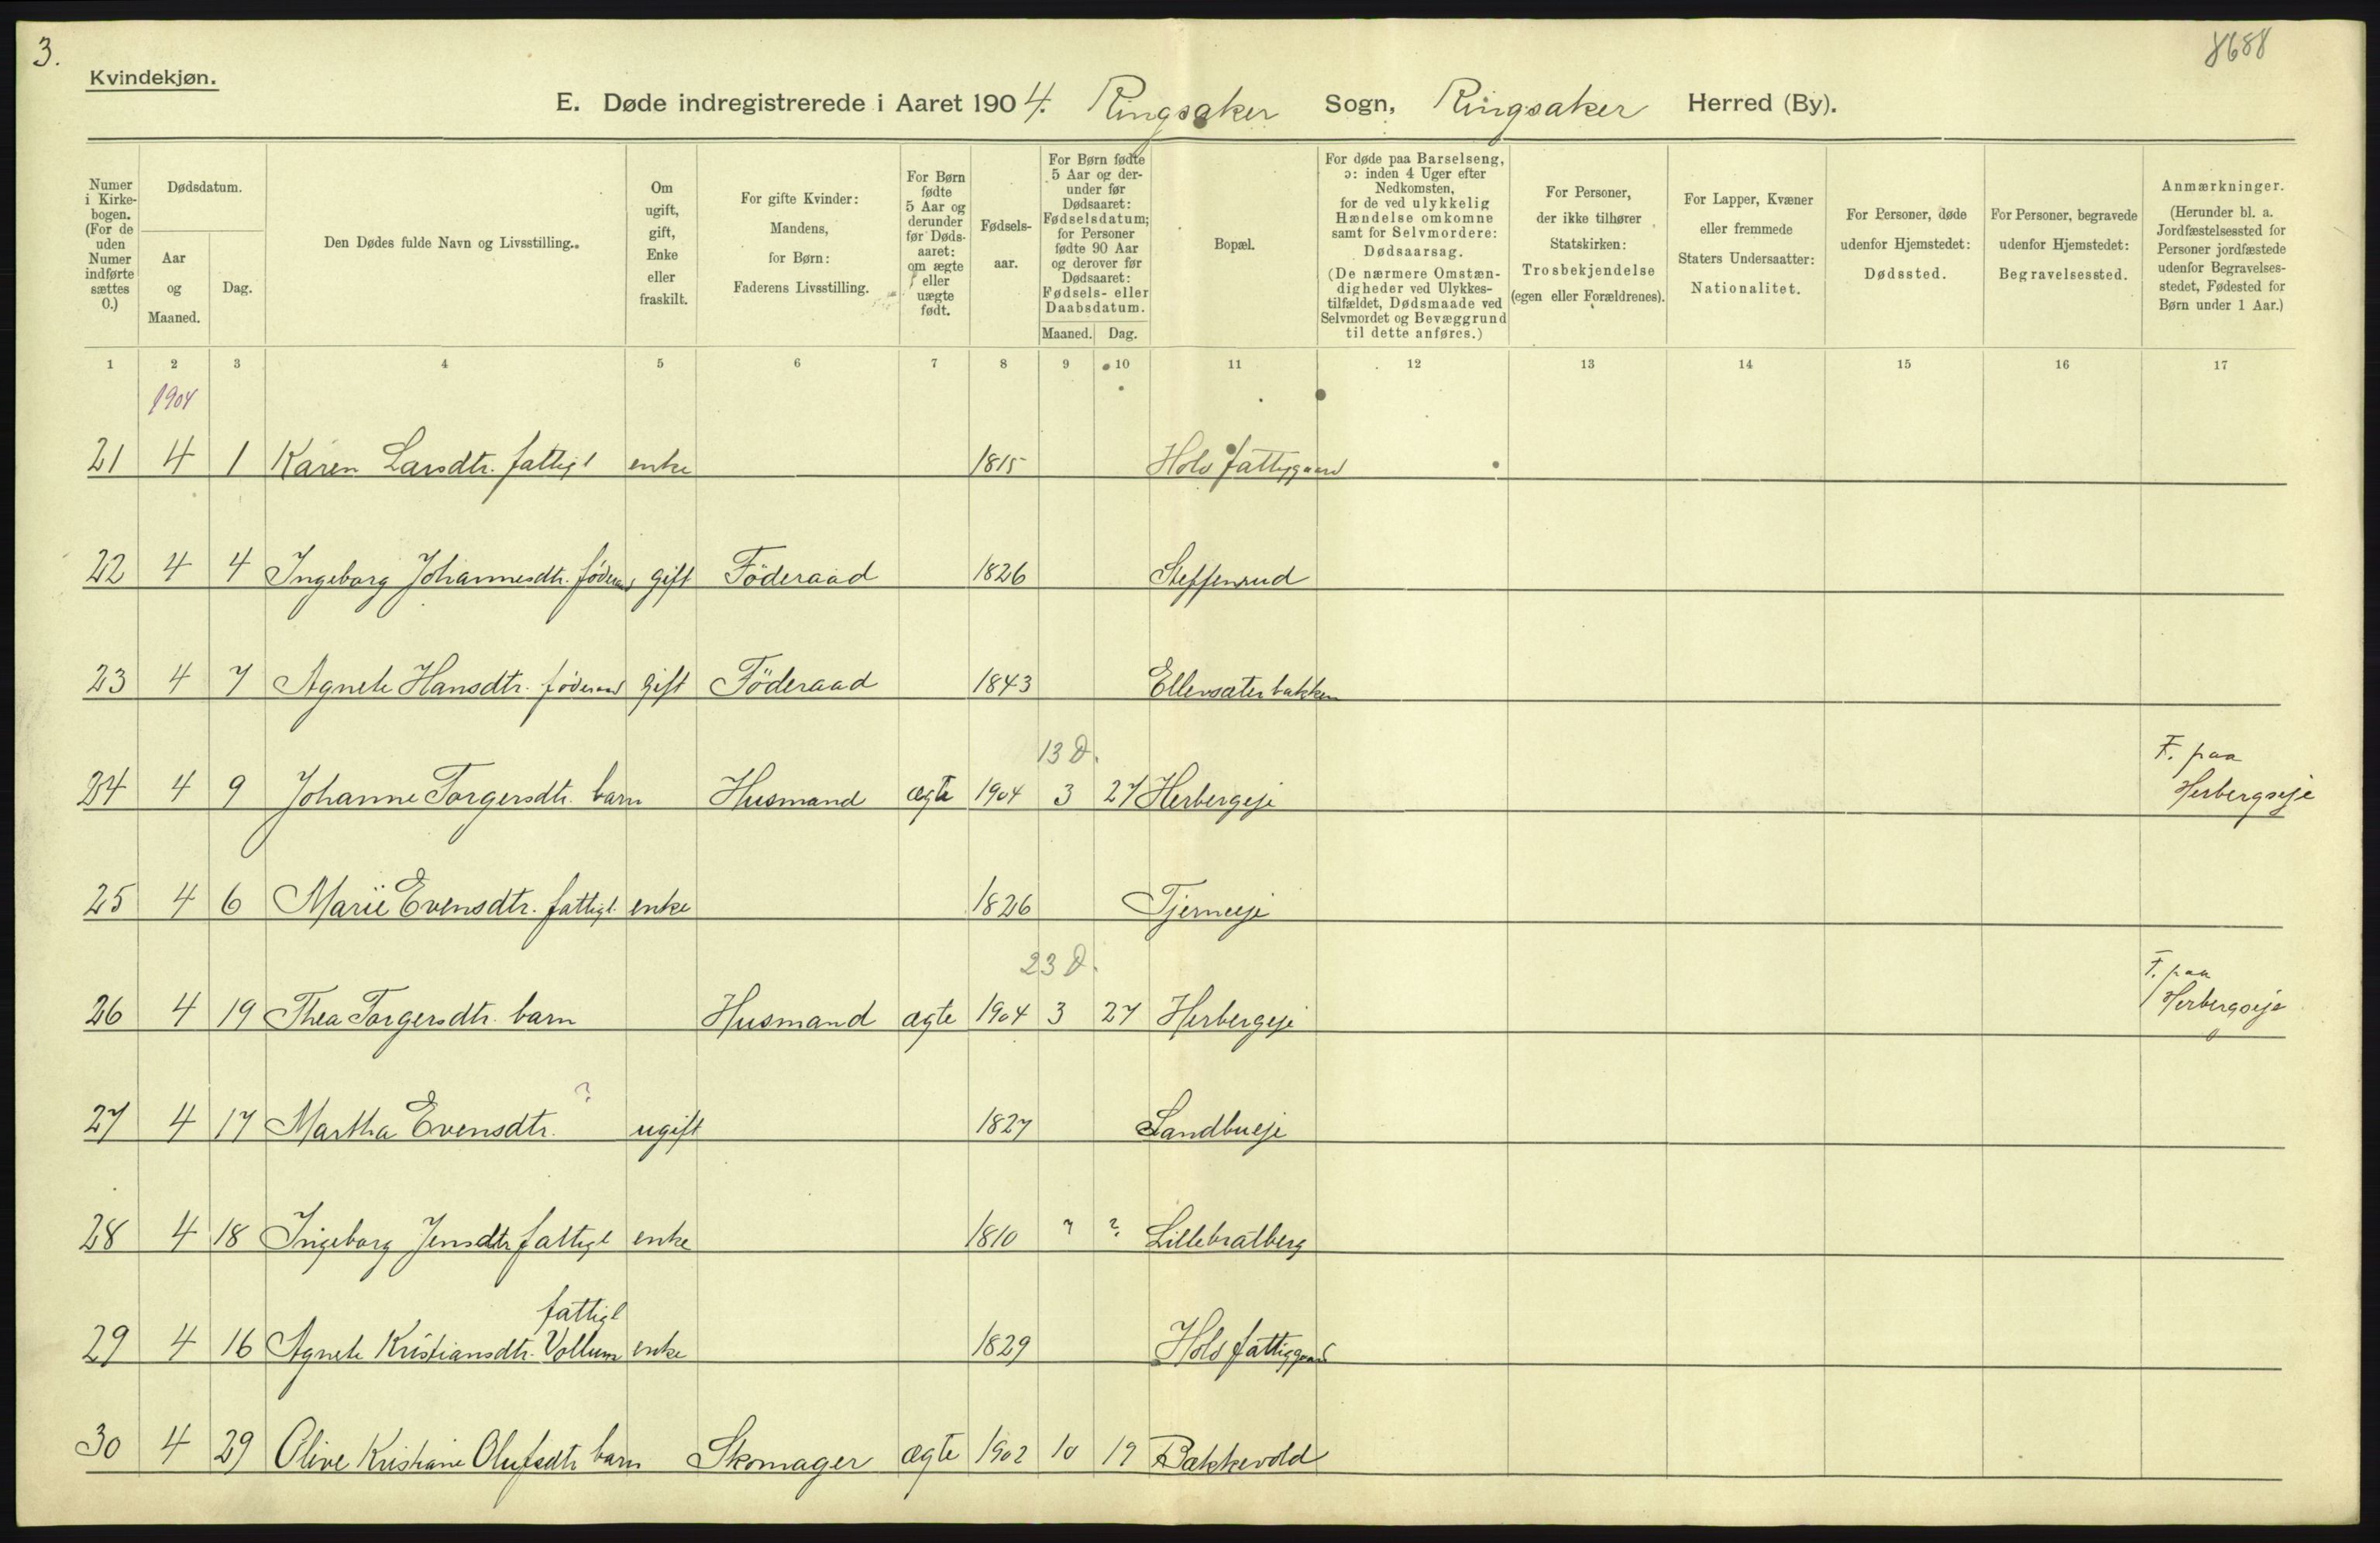 3.
8688
Kvindekjøn.
E. Døde indregistrerede i Aaret 1904. Ringsaker Sogn, Ringsaker Herred (By).
Numer i Kirkebogen. (For de uden Numer indførte sættes 0.)
Dødsdatum.
Aar og Maaned.
Dag.
Den Dødes fulde Navn og Livsstilling.
Om ugift, gift, Enke eller fraskilt.
For gifte Kvinder: Mandens, for Børn: Faderens Livsstilling.
For Børn fødte 5 Aar og derunder før Dødsaaret: om ægte eller uægte født.
Fødselsaar.
For Børn fødte 5 Aar og derunder før Dødsaaret: Fødselsdatum; for Personer fødte 90 Aar og derover før Dødsaaret: Fødsels- eller Daabsdatum.
Maaned. Dag.
Bopæl.
For døde paa Barselseng, ɔ: inden 4 Uger efter Nedkomsten, for de ved ulykkelig Hændelse omkomne samt for Selvmordere: Dødsaarsag. (De nærmere Omstændigheder ved Ulykkestilfældet, Dødsmaade ved Selvmordet og Bevæggrund til dette anføres.)
For Personer, der ikke tilhører Statskirken: Trosbekjendelse (egen eller Forældrenes).
For Lapper, Kvæner eller fremmede Staters Undersaatter: Nationalitet.
For Personer, døde udenfor Hjemstedet: Dødssted.
For Personer, begravede udenfor Hjemstedet: Begravelsessted.
Anmærkninger. (Herunder bl. a. Jordfæstelsessted for Personer jordfæstede udenfor Begravelsesstedet, Fødested for Børn under 1 Aar.)
1 2 3 4 5 6 7 8 9 10 11 12 13 14 15 16 17
1904
21 4 1 Karen Larsdtr. fattigl enke 1815 Hols fattiggaard
22 4 4 Ingeborg Johannesdtr. föderaad gift Föderaad 1826 Steffensrud
23 4 7 Agnete Hansdtr. föderaad gift Föderaad 1843 Ellevsæterbakken
13 D. F. paa
24 4 9 Johanne Torgersdtr. barn Husmand ægte 1904 3 27 Herbergeje Herbergseje
25 4 6 Marie Evensdtr. fattigl. enke 1826 Tjerneeje
23 D. F. paa
26 4 19 Thea Torgersdtr. barn Husmand ægte 1904 3 27 Herbergeje Herbergseje
?
27 4 17 Martha Evensdtr. ugift 1827 Sandbueje
28 4 18 Ingeborg Jensdtr fattigl enke 1810 ? ? Lillebratberg
fattigl
29 4 16 Agnete Kristiansdtr. Vollum enke 1829 Hols fattiggaard
30 4 29 Olive Kristiane Olufsdtr barn Skomager ægte 1902 10 19 Bækkevold